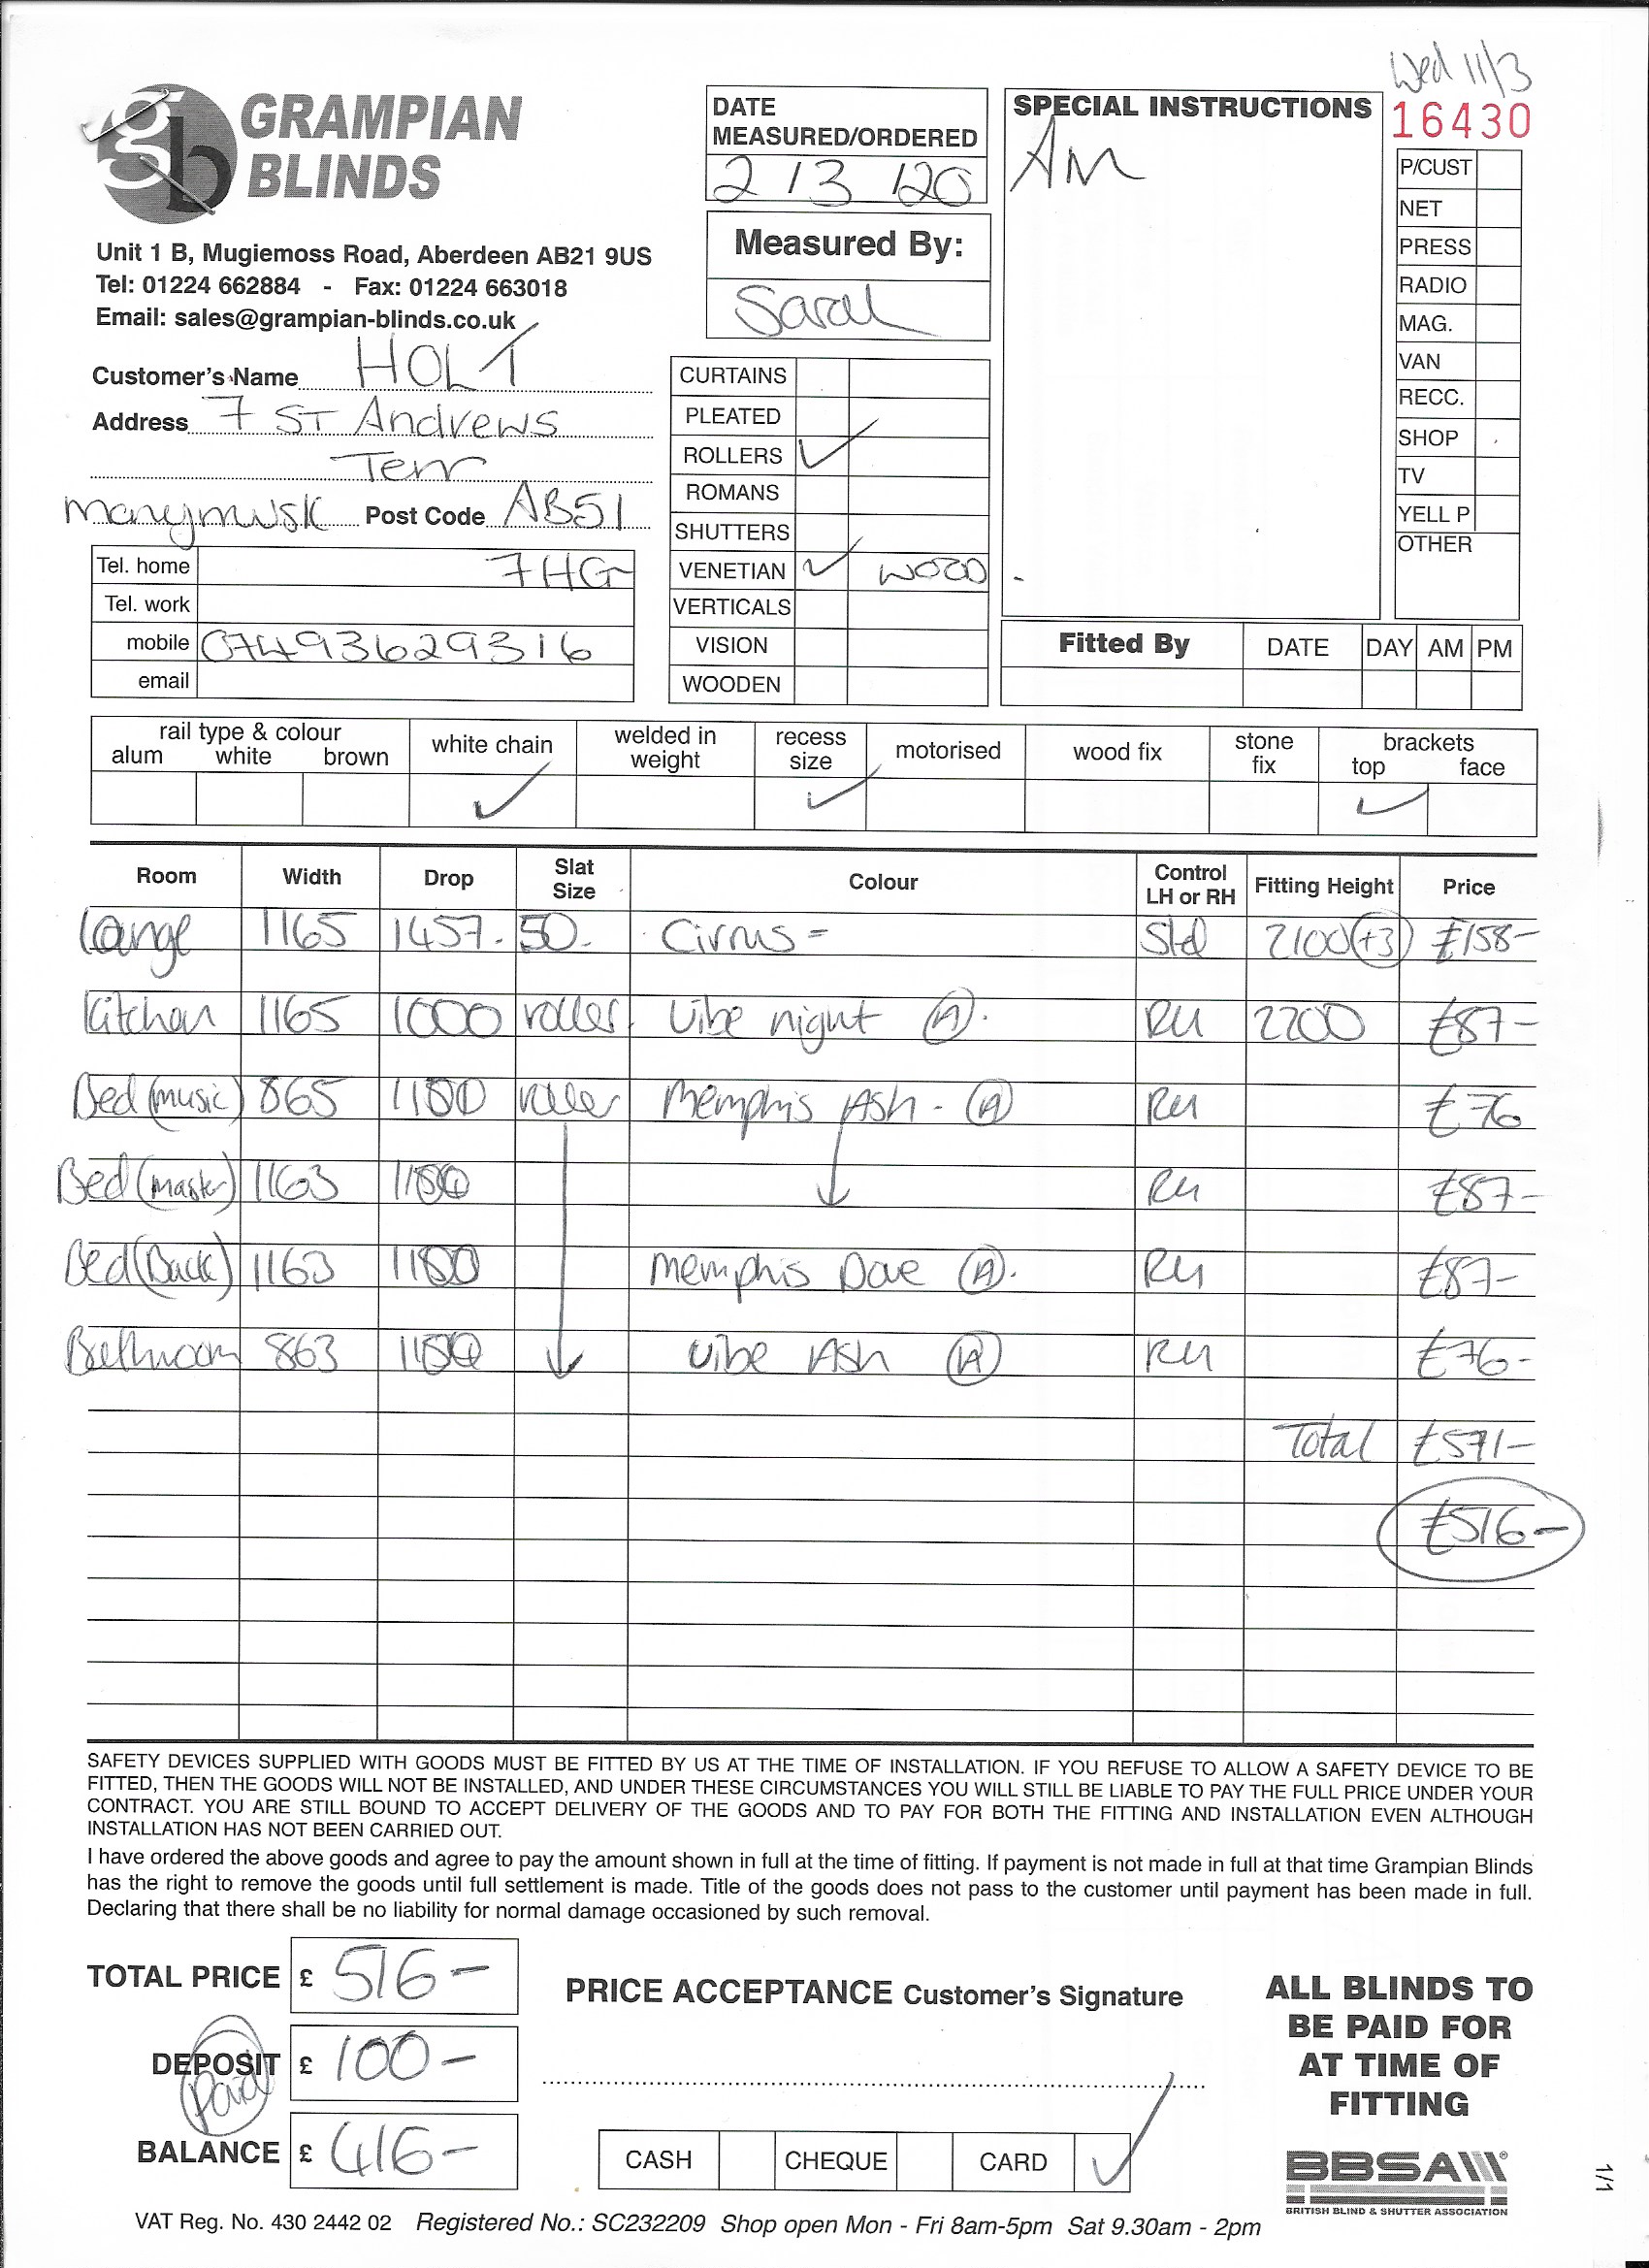 Wed 11/3
16430
gb GRAMPIAN
BLINDS
Unit 1 B, Mugiemoss Road, Aberdeen AB21 9US
Tel: 01224 662884 - Fax: 01224 663018
Email: sales@grampian-blinds.co.uk
Customer's Name HOLT
Address 7 ST Andrews
Terr
Monymusk Post Code AB51
Tel. home 7HG
Tel. work
mobile 07493629316
email
DATE
MEASURED/ORDERED
2/3/20
Measured By:
Sarah
CURTAINS
PLEATED
ROLLERS ✓
ROMANS
SHUTTERS
VENETIAN ✓ WOOD
VERTICALS
VISION
WOODEN
SPECIAL INSTRUCTIONS
AM
P/CUST
NET
PRESS
RADIO
MAG.
VAN
RECC.
SHOP
TV
YELL P
OTHER
Fitted By DATE DAY AM PM
rail type & colour
alum white brown
white chain ✓
welded in
weight
recess
size ✓
motorised
wood fix
stone
fix
brackets
top ✓ face
Room Width Drop Slat Size Colour Control LH or RH Fitting Height Price
Lounge 1165 1457. 50. Cirrus = Std 2100 (+3) £158-
Kitchen 1165 1000 roller. Vibe night (A). RH 2200 £87-
Bed (music) 865 1180 roller Memphis Ash - (A) RH £76
Bed (master) 1163 RH £87-
Bed (Back) 1163 1180 Memphis Dove (A). RH £87-
Bathroom 863 Vibe Ash (A) RH £76-
Total £571-
£516-
SAFETY DEVICES SUPPLIED WITH GOODS MUST BE FITTED BY US AT THE TIME OF INSTALLATION. IF YOU REFUSE TO ALLOW A SAFETY DEVICE TO BE
FITTED, THEN THE GOODS WILL NOT BE INSTALLED, AND UNDER THESE CIRCUMSTANCES YOU WILL STILL BE LIABLE TO PAY THE FULL PRICE UNDER YOUR
CONTRACT. YOU ARE STILL BOUND TO ACCEPT DELIVERY OF THE GOODS AND TO PAY FOR BOTH THE FITTING AND INSTALLATION EVEN ALTHOUGH
INSTALLATION HAS NOT BEEN CARRIED OUT.
I have ordered the above goods and agree to pay the amount shown in full at the time of fitting. If payment is not made in full at that time Grampian Blinds
has the right to remove the goods until full settlement is made. Title of the goods does not pass to the customer until payment has been made in full.
Declaring that there shall be no liability for normal damage occasioned by such removal.
TOTAL PRICE £ 516-
DEPOSIT £ 100-
Paid
BALANCE £ 416-
PRICE ACCEPTANCE Customer's Signature
CASH CHEQUE CARD ✓
ALL BLINDS TO
BE PAID FOR
AT TIME OF
FITTING
BBSA
BRITISH BLIND & SHUTTER ASSOCIATION
1/1
VAT Reg. No. 430 2442 02 Registered No.: SC232209 Shop open Mon - Fri 8am-5pm Sat 9.30am - 2pm